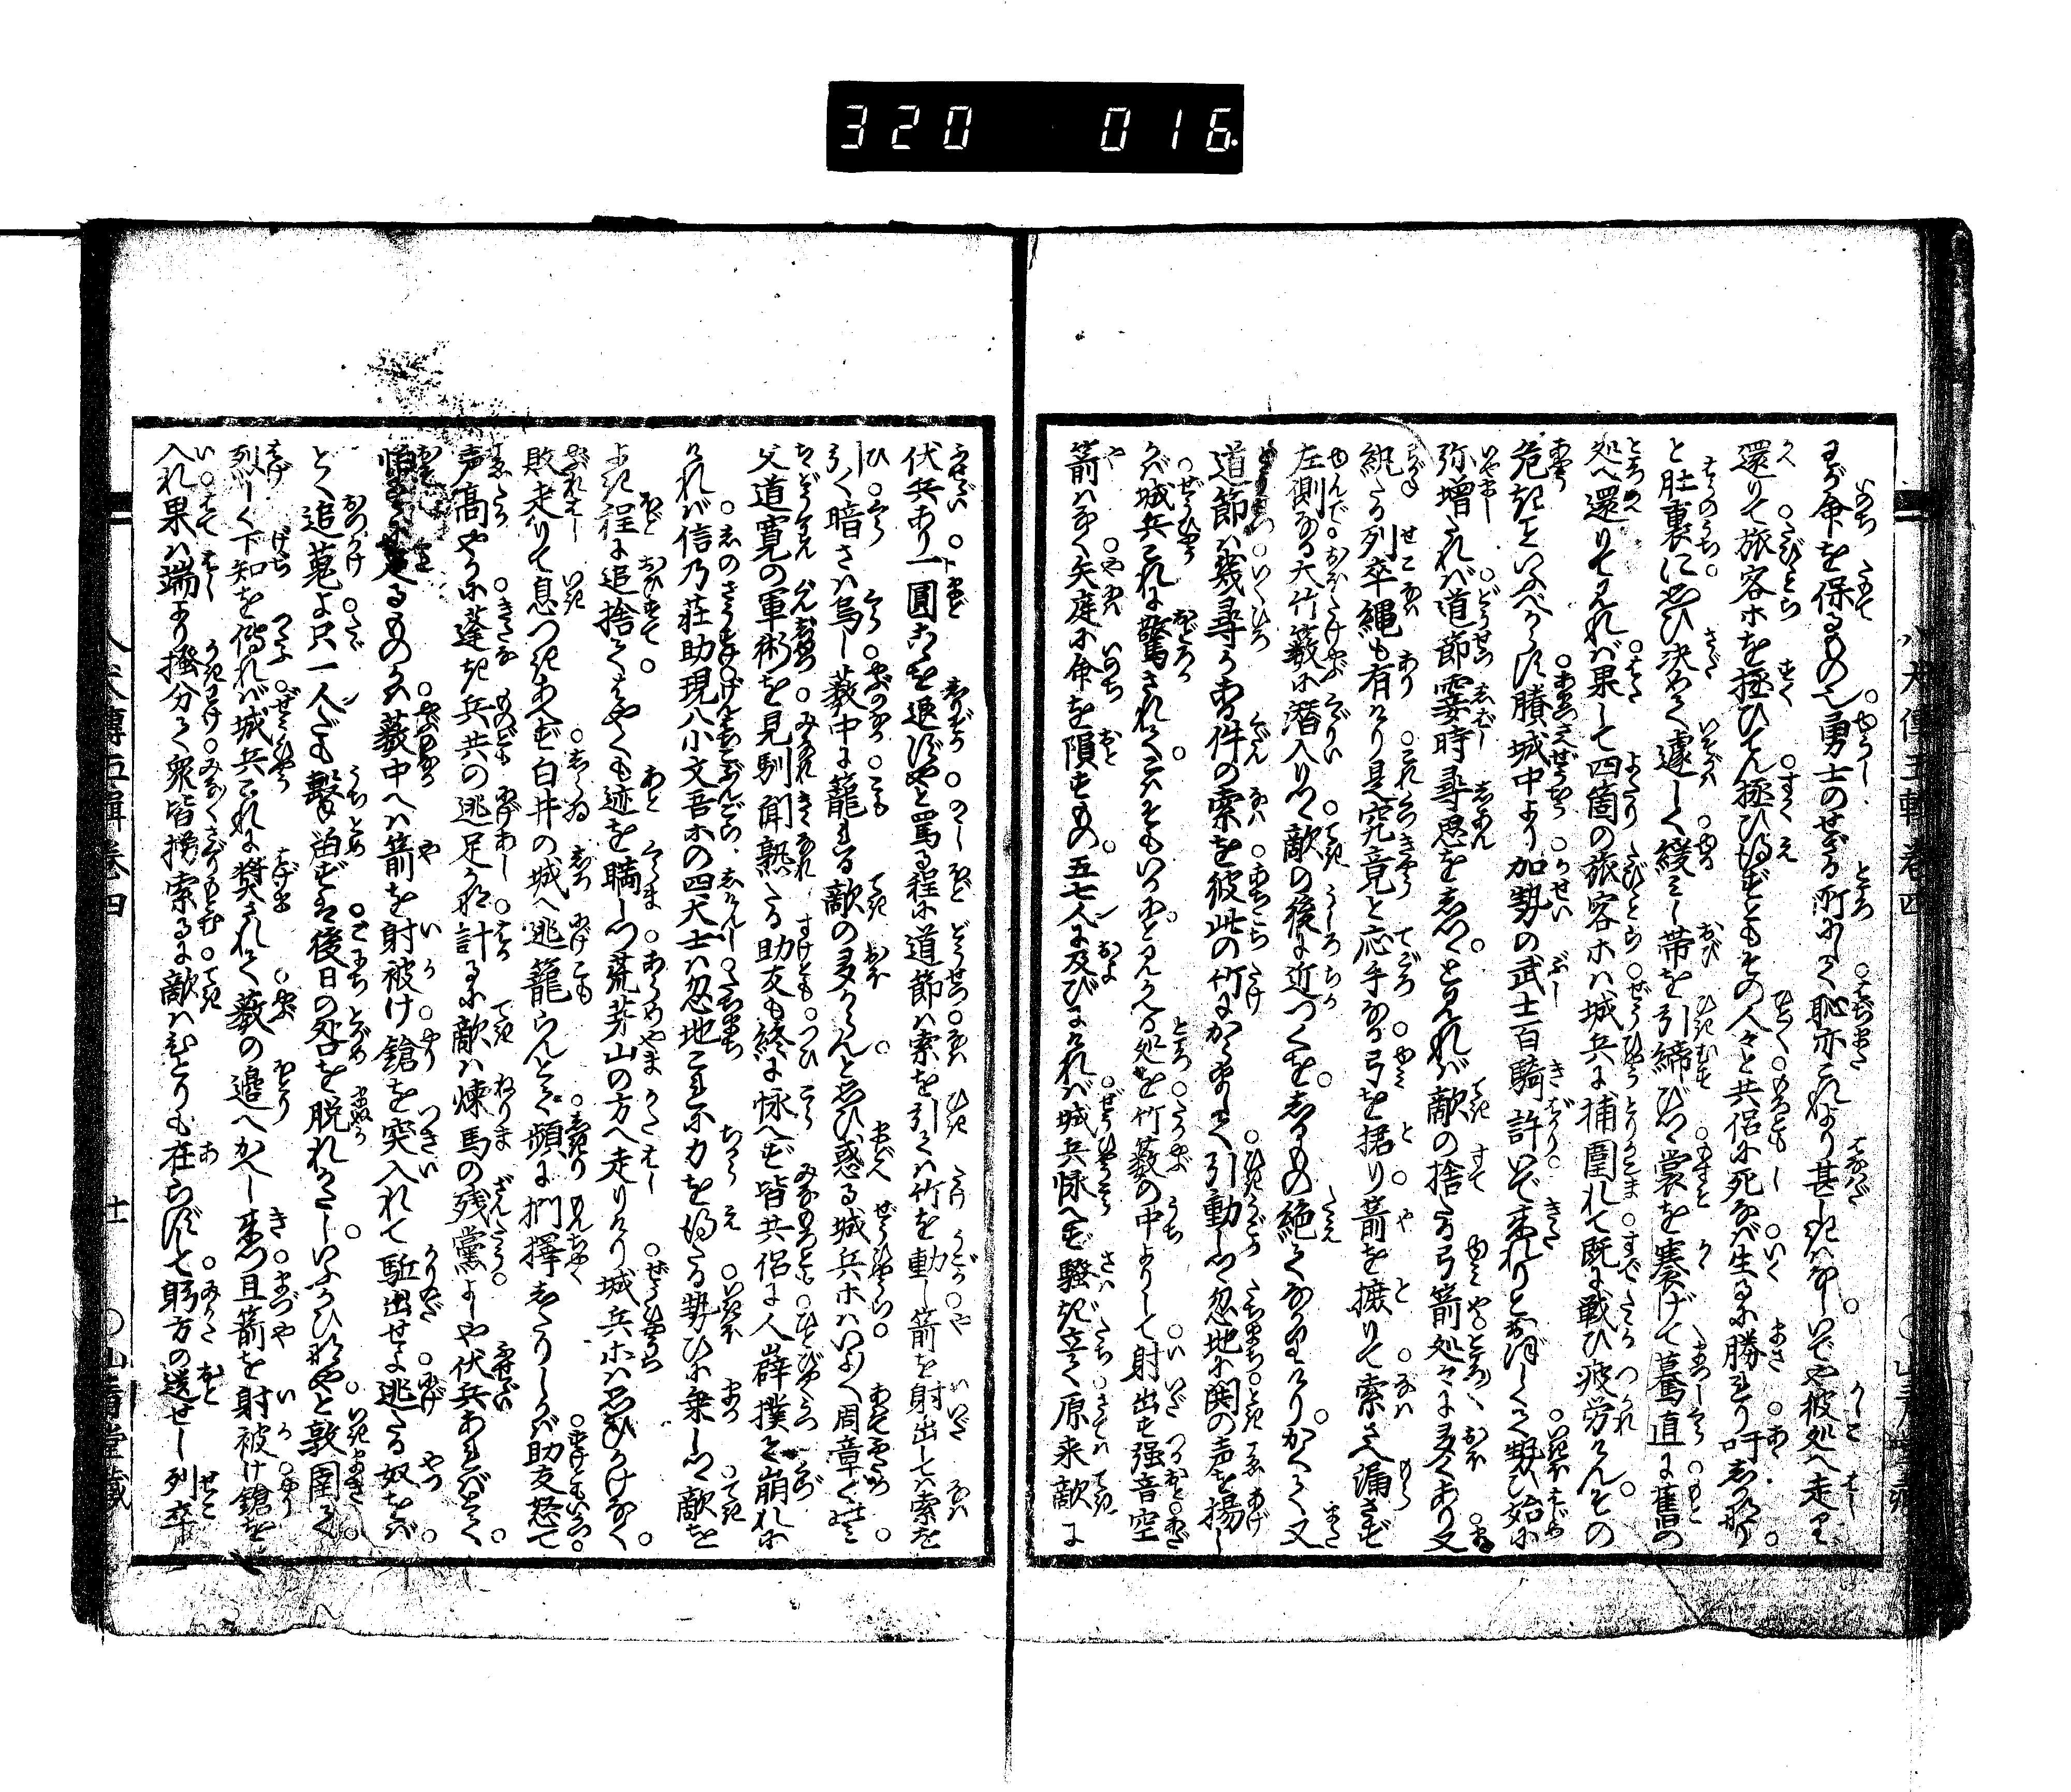 320 016
わが命を保るものハ勇士のせざる所にして恥亦これより甚しきハなしいでや彼処へ走り
還りて旅客ホを極ひてん極ひ得ずともその人々と共侶に死なバ生るに勝るより吁しか那り
と肚裏に思ひ決めて遽しく緩ミし帯を引締びつゝ裳を褰げて驀直に舊の
処へ還りて見れバ果して四箇の旅客ホハ城兵に捕圍れて既に戦ひ疲労けんその
危きこといふべからず賸城中より加勢の武士百騎許いで来れりとおぼしくて勢ひ始に
弥増たれバ道節霎時尋思をしつゝと見れバ敵の捨たる弓箭処々に多くあり又
紈たる列卒縄も有けり是究竟と応手なる弓を拠り箭を摭りて索さへ漏さず
左側なる大竹藪に潜入りつゝ敵の後に近つくをしるもの絶てなかりけりかくて又
道節ハ幾尋かある件の索を彼此の竹にかけわたして引動しつゝ忽地に鬨の声を揚し
かバ城兵これに驚されてこハそもいかにと見かへる処を竹藪の中よりして射出す強音空
箭ハなく矢庭に命を隕すもの五七人に及びけれバ城兵怺へず騒ぎ立て原来敵に
伏兵あり一圓にを退ずやと罵る程に道節ハ索を引てハ竹を動し箭を射出してハ索を
引く暗さハ烏し藪中に籠れる敵の多からんと思ひ惑る城兵ホハいよゝ周章ぐのミ
父道寛の軍術を見馴聞熟たる助友も終に怺へず皆共侶に人礔撲て崩れに
けれバ信乃荘助現八小文吾ホの四犬士ハ忽地これに力を得たる勢ひに乗しつゝ敵を
よき程に追捨てはやくも迹を瞞しつ荒芽山の方へ走りけり城兵ホハ思ひかけなく
敗走りて息つきあへず白井の城へ逃籠らんとて頻に捫擇したりしかバ助友怒て
声高やかに蓬き兵共の逃足かな計るに敵ハ煉馬の残黨よしや伏兵あれバとて
怕るゝに足るものかハ藪中へハ箭を射被け鎗を突入れて駈出せよ逃たる奴をバ
とく追蒐よ只一人だも撃泊ずハ後日の咎を脱れがたしいふかひなやと敦圉て
烈しく下知を傳れバ城兵これに奨されて藪の邉へかへし来つ且箭を射被け鎗を
入れ果ハ端より撥分て衆皆撈索るに敵ハひとりも在らずして躬方の遺せし列卒
八犬傳五輯巻四
十一
○山青堂藏